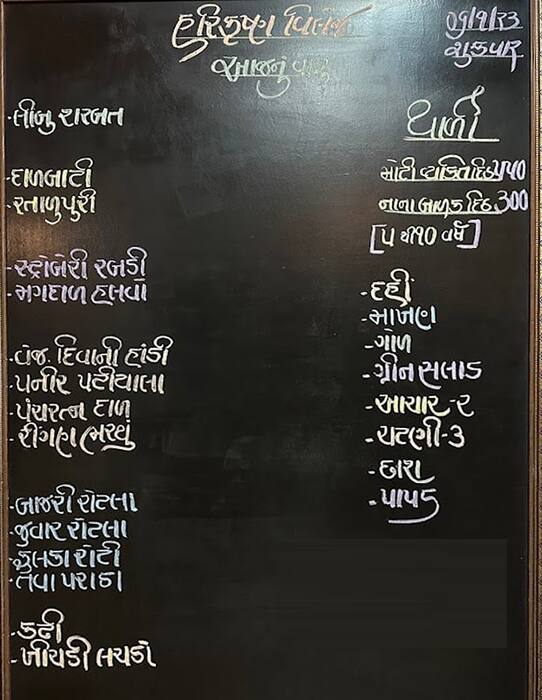 હરિકૃષ્ણ વિલેજ
આજનું વાળુ
૦૬/૧/૨૩
શુક્રવાર
-લીંબુ શરબત
-દાળબાટી
-રતાળુપુરી
-સ્ટ્રોબેરી રબડી
-મગદાળ હલવો
-વેજ. દિવાની હાંડી
-પનીર પટીયાલા
-પંચરત્ન દાળ
-રીંગણ ભરથું
-બાજરી રોટલા
-જુવાર રોટલા
-ફુલકા રોટી
-તવા પરાઠા
-કઢી
-ખીચડી લચકો
થાળી
મોટી વ્યક્તિ દિઠ ૫૫૦
નાના બાળક દિઠ. 300
[૫ થી ૧૦ વર્ષ]
-દહીં
-માખણ
-ગોળ
-ગ્રીન સલાડ
-આચાર-૨
-ચટણી-૩
-છાશ
-પાપડ